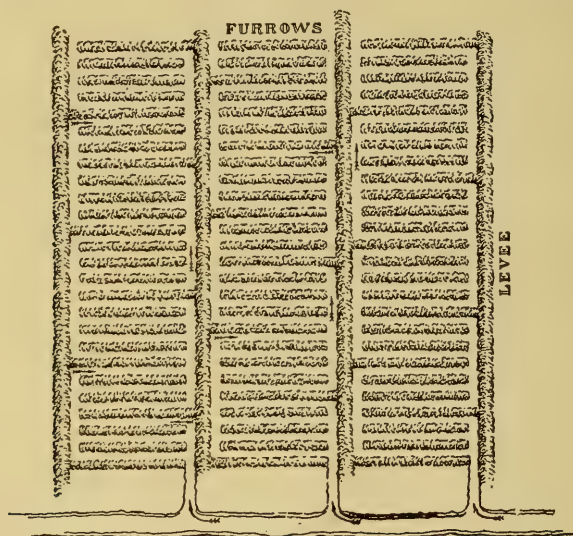 FURROWS
LEVEE